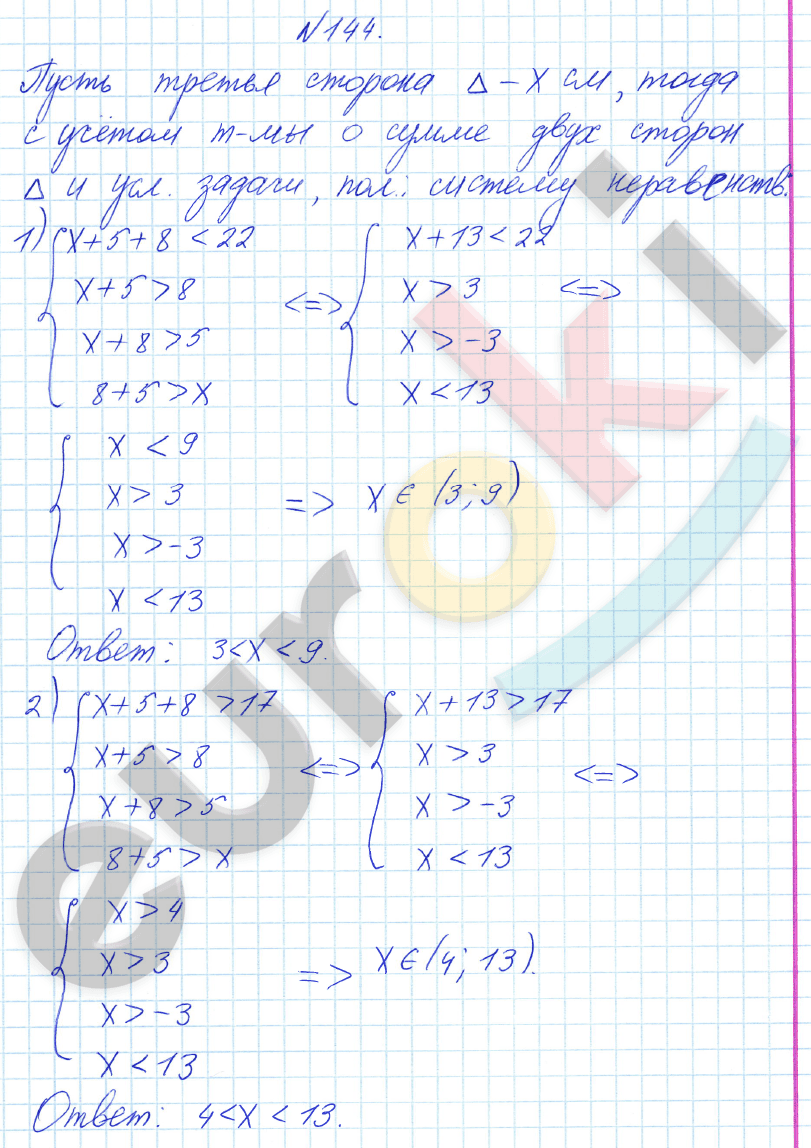 №144.
Пусть третья сторона Δ – x см, тогда
с учётом т-мы о сумме двух сторон
Δ и усл. задачи, пол.: систему неравенств:
1) { x+5+8 < 22 { x+13 < 22
x+5 > 8 <=> x > 3 <=>
x+8 > 5 x > -3
8+5 > x x < 13
{ x < 9
x > 3 => x ∈ (3; 9)
x > -3
x < 13
Ответ: 3 < x < 9.
2) { x+5+8 > 17 { x+13 > 17
x+5 > 8 <=> x > 3 <=>
x+8 > 5 x > -3
8+5 > x x < 13
{ x > 4
x > 3 => x ∈ (4; 13).
x > -3
x < 13
Ответ: 4 < x < 13.
euroki